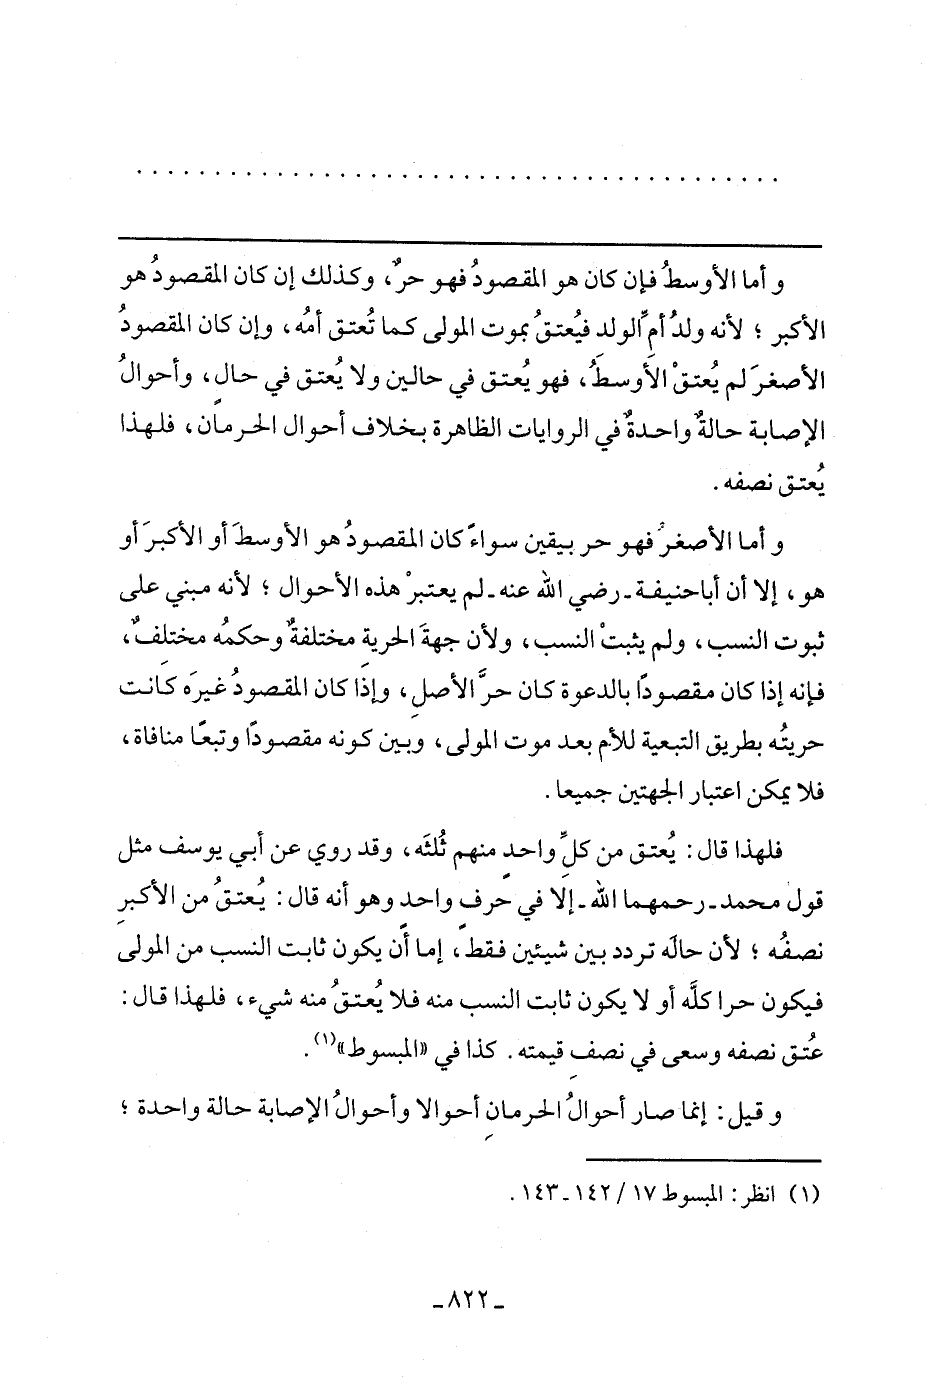 . . . . . . . . . . . . . . . . . . . . . . . . . . . . . . . . . . . . . . . .
و أما الأوسطُ فإن كان هو المقصودُ فهو حرٌ، وكذلك إن كان المقصودُ هو
الأكبر ؛ لأنه ولدُ أمِّ الولد فيُعتقُ بموت المولى كما تُعتق أمُه، وإن كان المقصودُ
الأصغرَ لم يُعتقْ الأوسطُ، فهو يُعتق في حالين ولا يُعتق في حالٍ، وأحوالُ
الإصابة حالةٌ واحدةٌ في الروايات الظاهرة بخلاف أحوال الحرمان، فلهذا
يُعتق نصفه .
و أما الأصغرُ فهو حر بيقين سواءً كان المقصودُ هو الأوسطَ أو الأكبرَ أو
هو، إلا أن أباحنيفة ـ رضي الله عنه ـ لم يعتبرْ هذه الأحوال ؛ لأنه مبني على
ثبوت النسب، ولم يثبتْ النسب، ولأن جهةَ الحرية مختلفةٌ وحكمُه مختلفٌ،
فإنه إذا كان مقصودًا بالدعوة كان حرَّ الأصلِ، وإذا كان المقصودُ غيرَه كانت
حريتُه بطريق التبعية للأم بعد موت المولى، وبين كونه مقصودًا وتبعًا منافاة،
فلا يمكن اعتبار الجهتين جميعا .
فلهذا قال : يُعتق من كلِّ واحدٍ منهم ثُلثَه، وقد روي عن أبي يوسف مثل
قول محمد ـ رحمهما الله ـ إلا في حرفٍ واحدٍ وهو أنه قال : يُعتقُ من الأكبرِ
نصفُه ؛ لأن حالَه تردد بين شيئين فقط، إما أن يكون ثابت النسب من المولى
فيكون حرا كلَّه أو لا يكون ثابت النسب منه فلا يُعتقُ منه شيء، فلهذا قال :
عُتق نصفه وسعى في نصفِ قيمته . كذا في «المبسوط»(١) .
و قيل : إنما صار أحوالُ الحرمانِ أحوالا وأحوالُ الإصابة حالة واحدة ؛
(١) انظر : المبسوط ١٧ / ١٤٢ ـ ١٤٣ .
ـ ٨٢٢ ـ